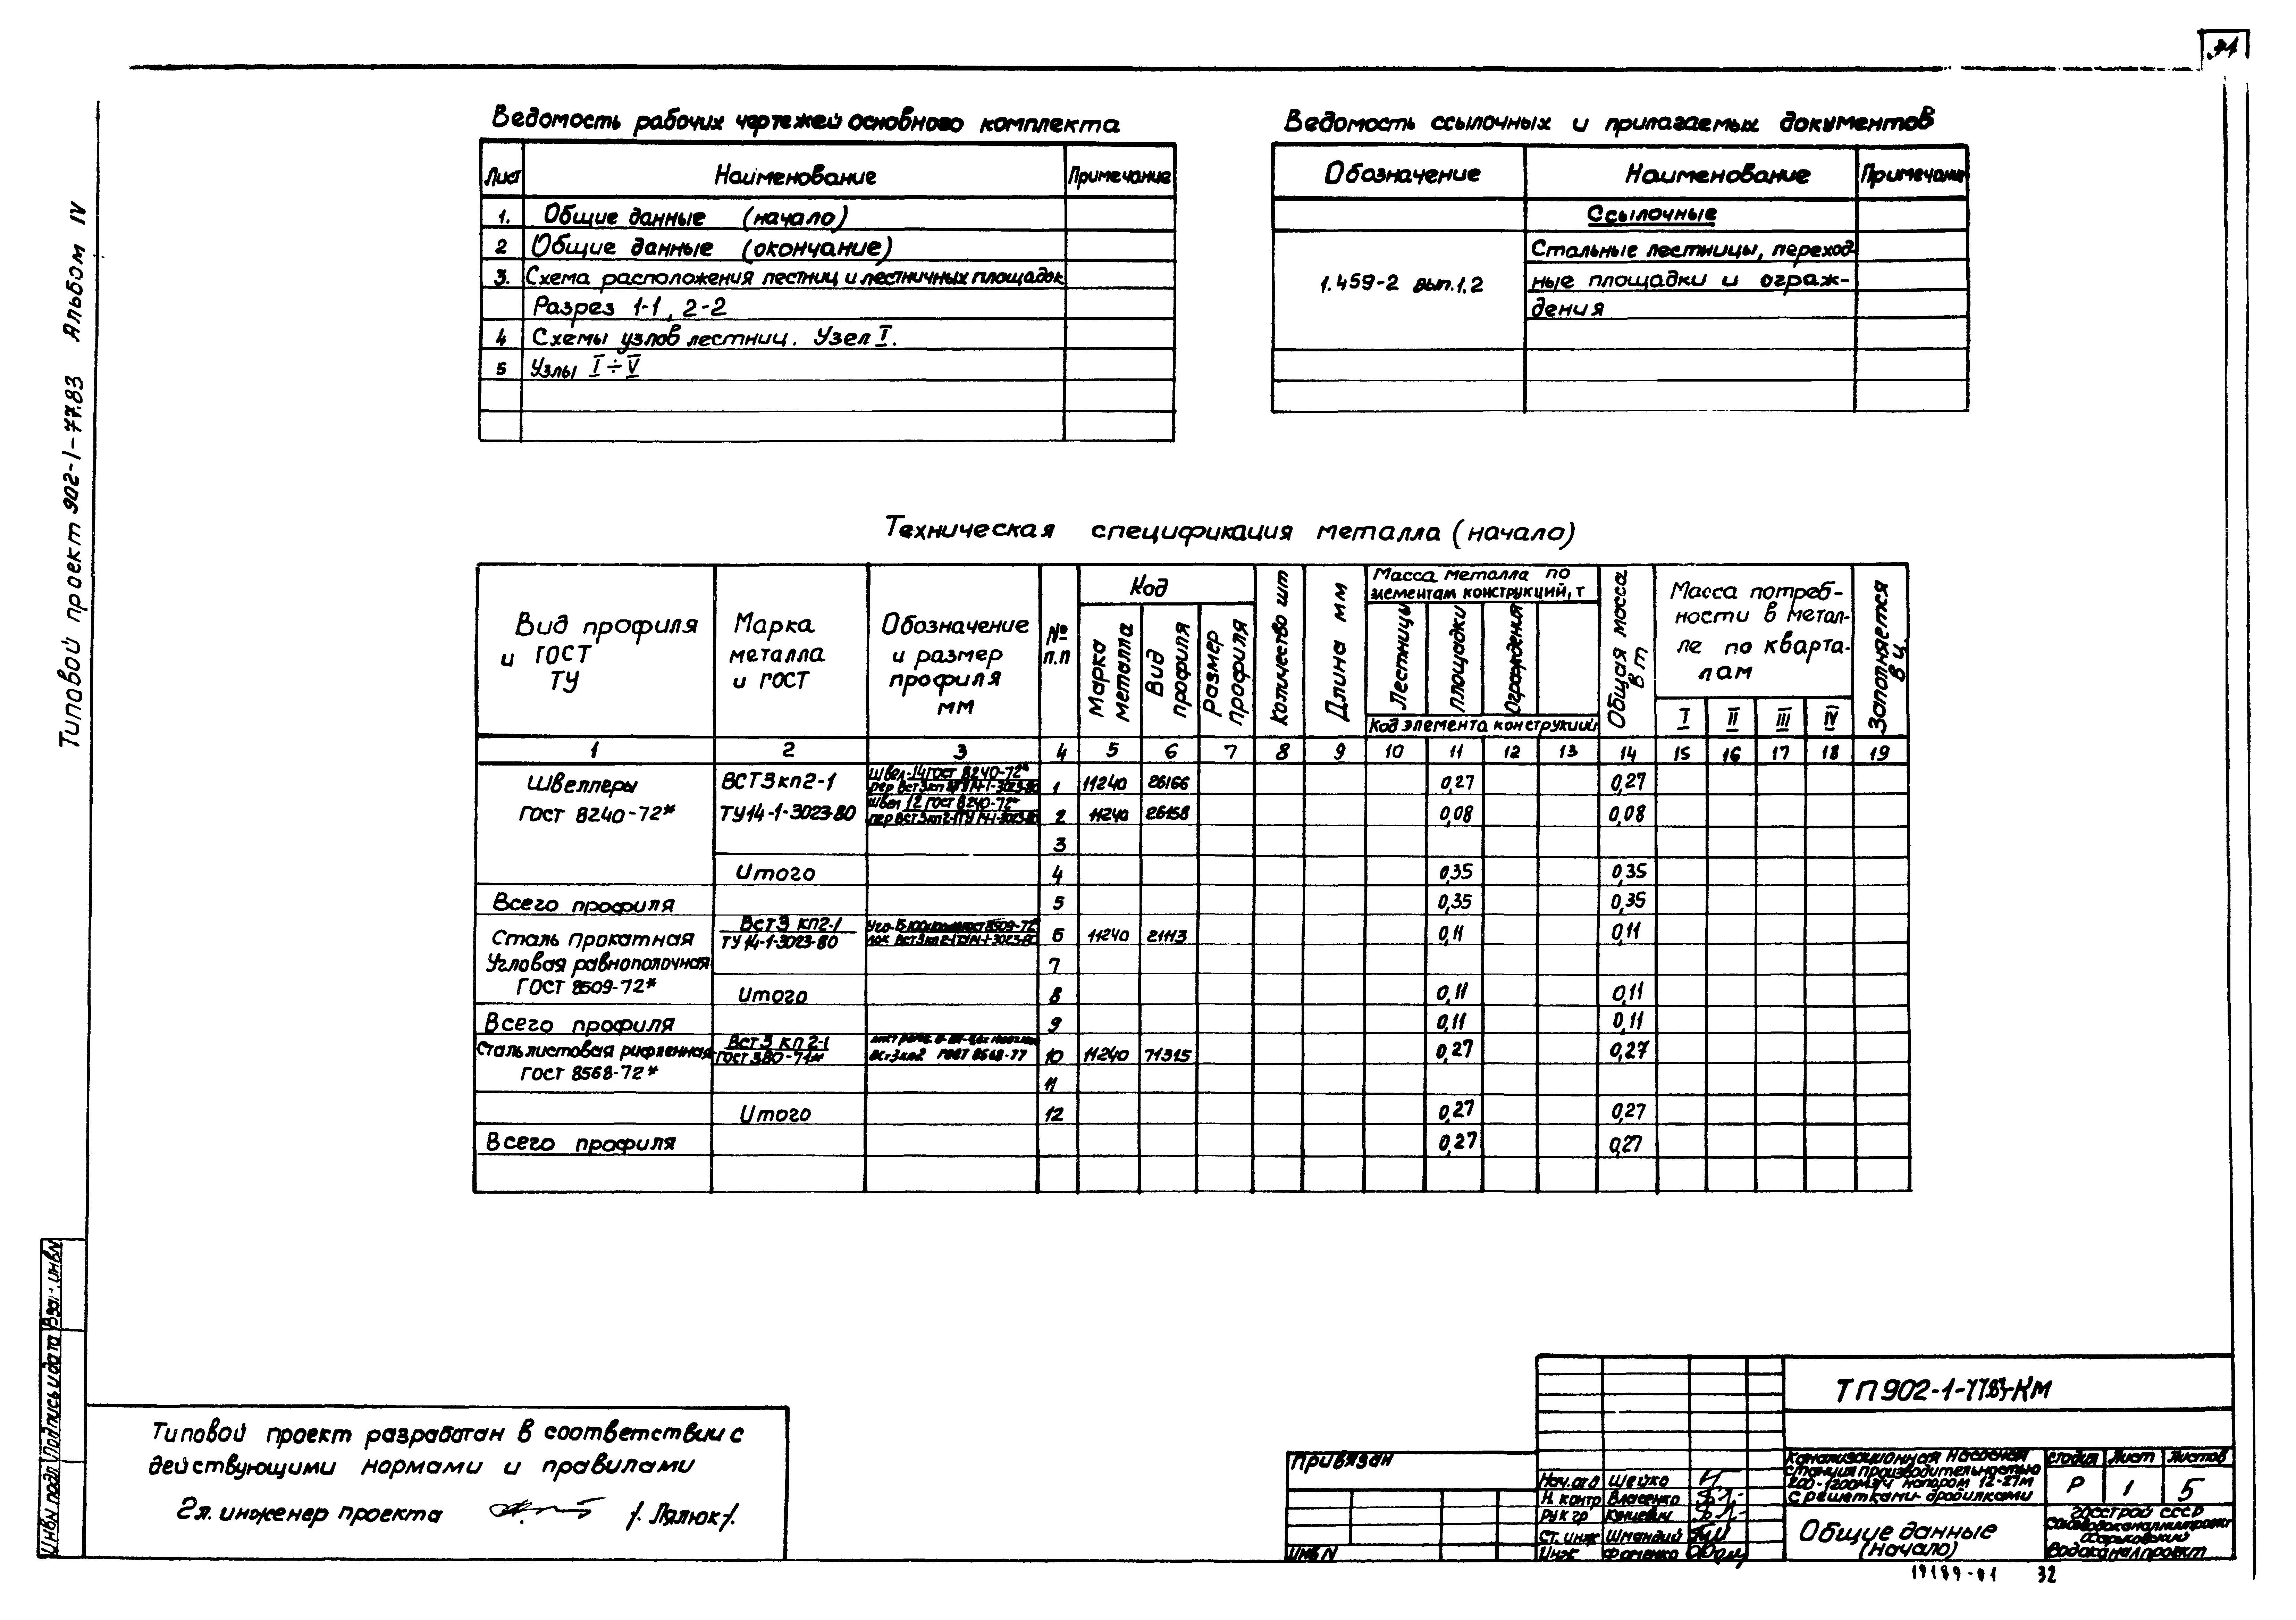 31
Типовой проект 902-1-77.83 Альбом IV
Ведомость рабочих чертежей основного комплекта
Лист Наименование Примечание
1. Общие данные (начало)
2 Общие данные (окончание)
3. Схема расположения лестниц и лестничных площадок
Разрез 1-1, 2-2
4 Схемы узлов лестниц. Узел I.
5 Узлы I÷V
Ведомость ссылочных и прилагаемых документов
Обозначение Наименование Примечание
Ссылочные
1.459-2 вып.1,2
Стальные лестницы, переход-
ные площадки и ограж-
дения
Техническая спецификация металла (начало)
Вид профиля
и ГОСТ
ТУ
Марка
металла
и ГОСТ
Обозначение
и размер
профиля
мм
№
п.п
Код
Марка
металла
Вид
профиля
Размер
профиля
Количество шт
Длина мм
Масса металла по
элементам конструкций, т
Лестницы
Площадки
Ограждения
Код элемента конструкций
Общая масса
в т
Масса потреб-
ности в метал-
ле по кварта-
лам
I II III IV
Заполняется
в ц.
1 2 3 4 5 6 7 8 9 10 11 12 13 14 15 16 17 18 19
Швеллеры ВСТ3кп2-1 Швел. 14 ГОСТ 8240-72* 1 11240 26166 0,27 0,27
пер ВСт3кп2-1 ТУ14-1-3023-80
ГОСТ 8240-72* ТУ14-1-3023-80 Швел 12 ГОСТ 8240-72* 2 11240 26158 0,08 0,08
пер ВСт3кп2-1 ТУ14-1-3023-80
3
Итого 4 0,35 0,35
Всего профиля 5 0,35 0,35
Сталь прокатная ВСт3 кп2-1 6 11240 21113 0,11 0,11
ТУ 14-1-3023-80
Угловая равнополочная 7
ГОСТ 8509-72* Итого 8 0,11 0,11
Всего профиля 9 0,11 0,11
Сталь листовая рифленная ВСт3 кп2-1 ВСт3кп2 ГОСТ 8568-77 10 11240 71315 0,27 0,27
ГОСТ 380-71*
ГОСТ 8568-72* 11
Итого 12 0,27 0,27
Всего профиля 0,27 0,27
Инв N подл Подпись и дата Взам. инв N
Типовой проект разработан в соответствии с
действующими нормами и правилами
Гл. инженер проекта /. Лялюк /.
Привязан
Инв N
Нач. отд Шейко
Н. контр Власенко
Рук гр
Ст. инж Шмандий
Инж Фоменко
ТП902-1-77.83-КМ
Канализационная насосная
станция производительностью
200-1200м3/ч напором 12-27м
с решетками-дробилками
Стадия Лист Листов
Р 1 5
Общие данные
(начало)
Госстрой СССР
Союзводоканалниипроект
Харьковский
Водоканалпроект
19189-01 32